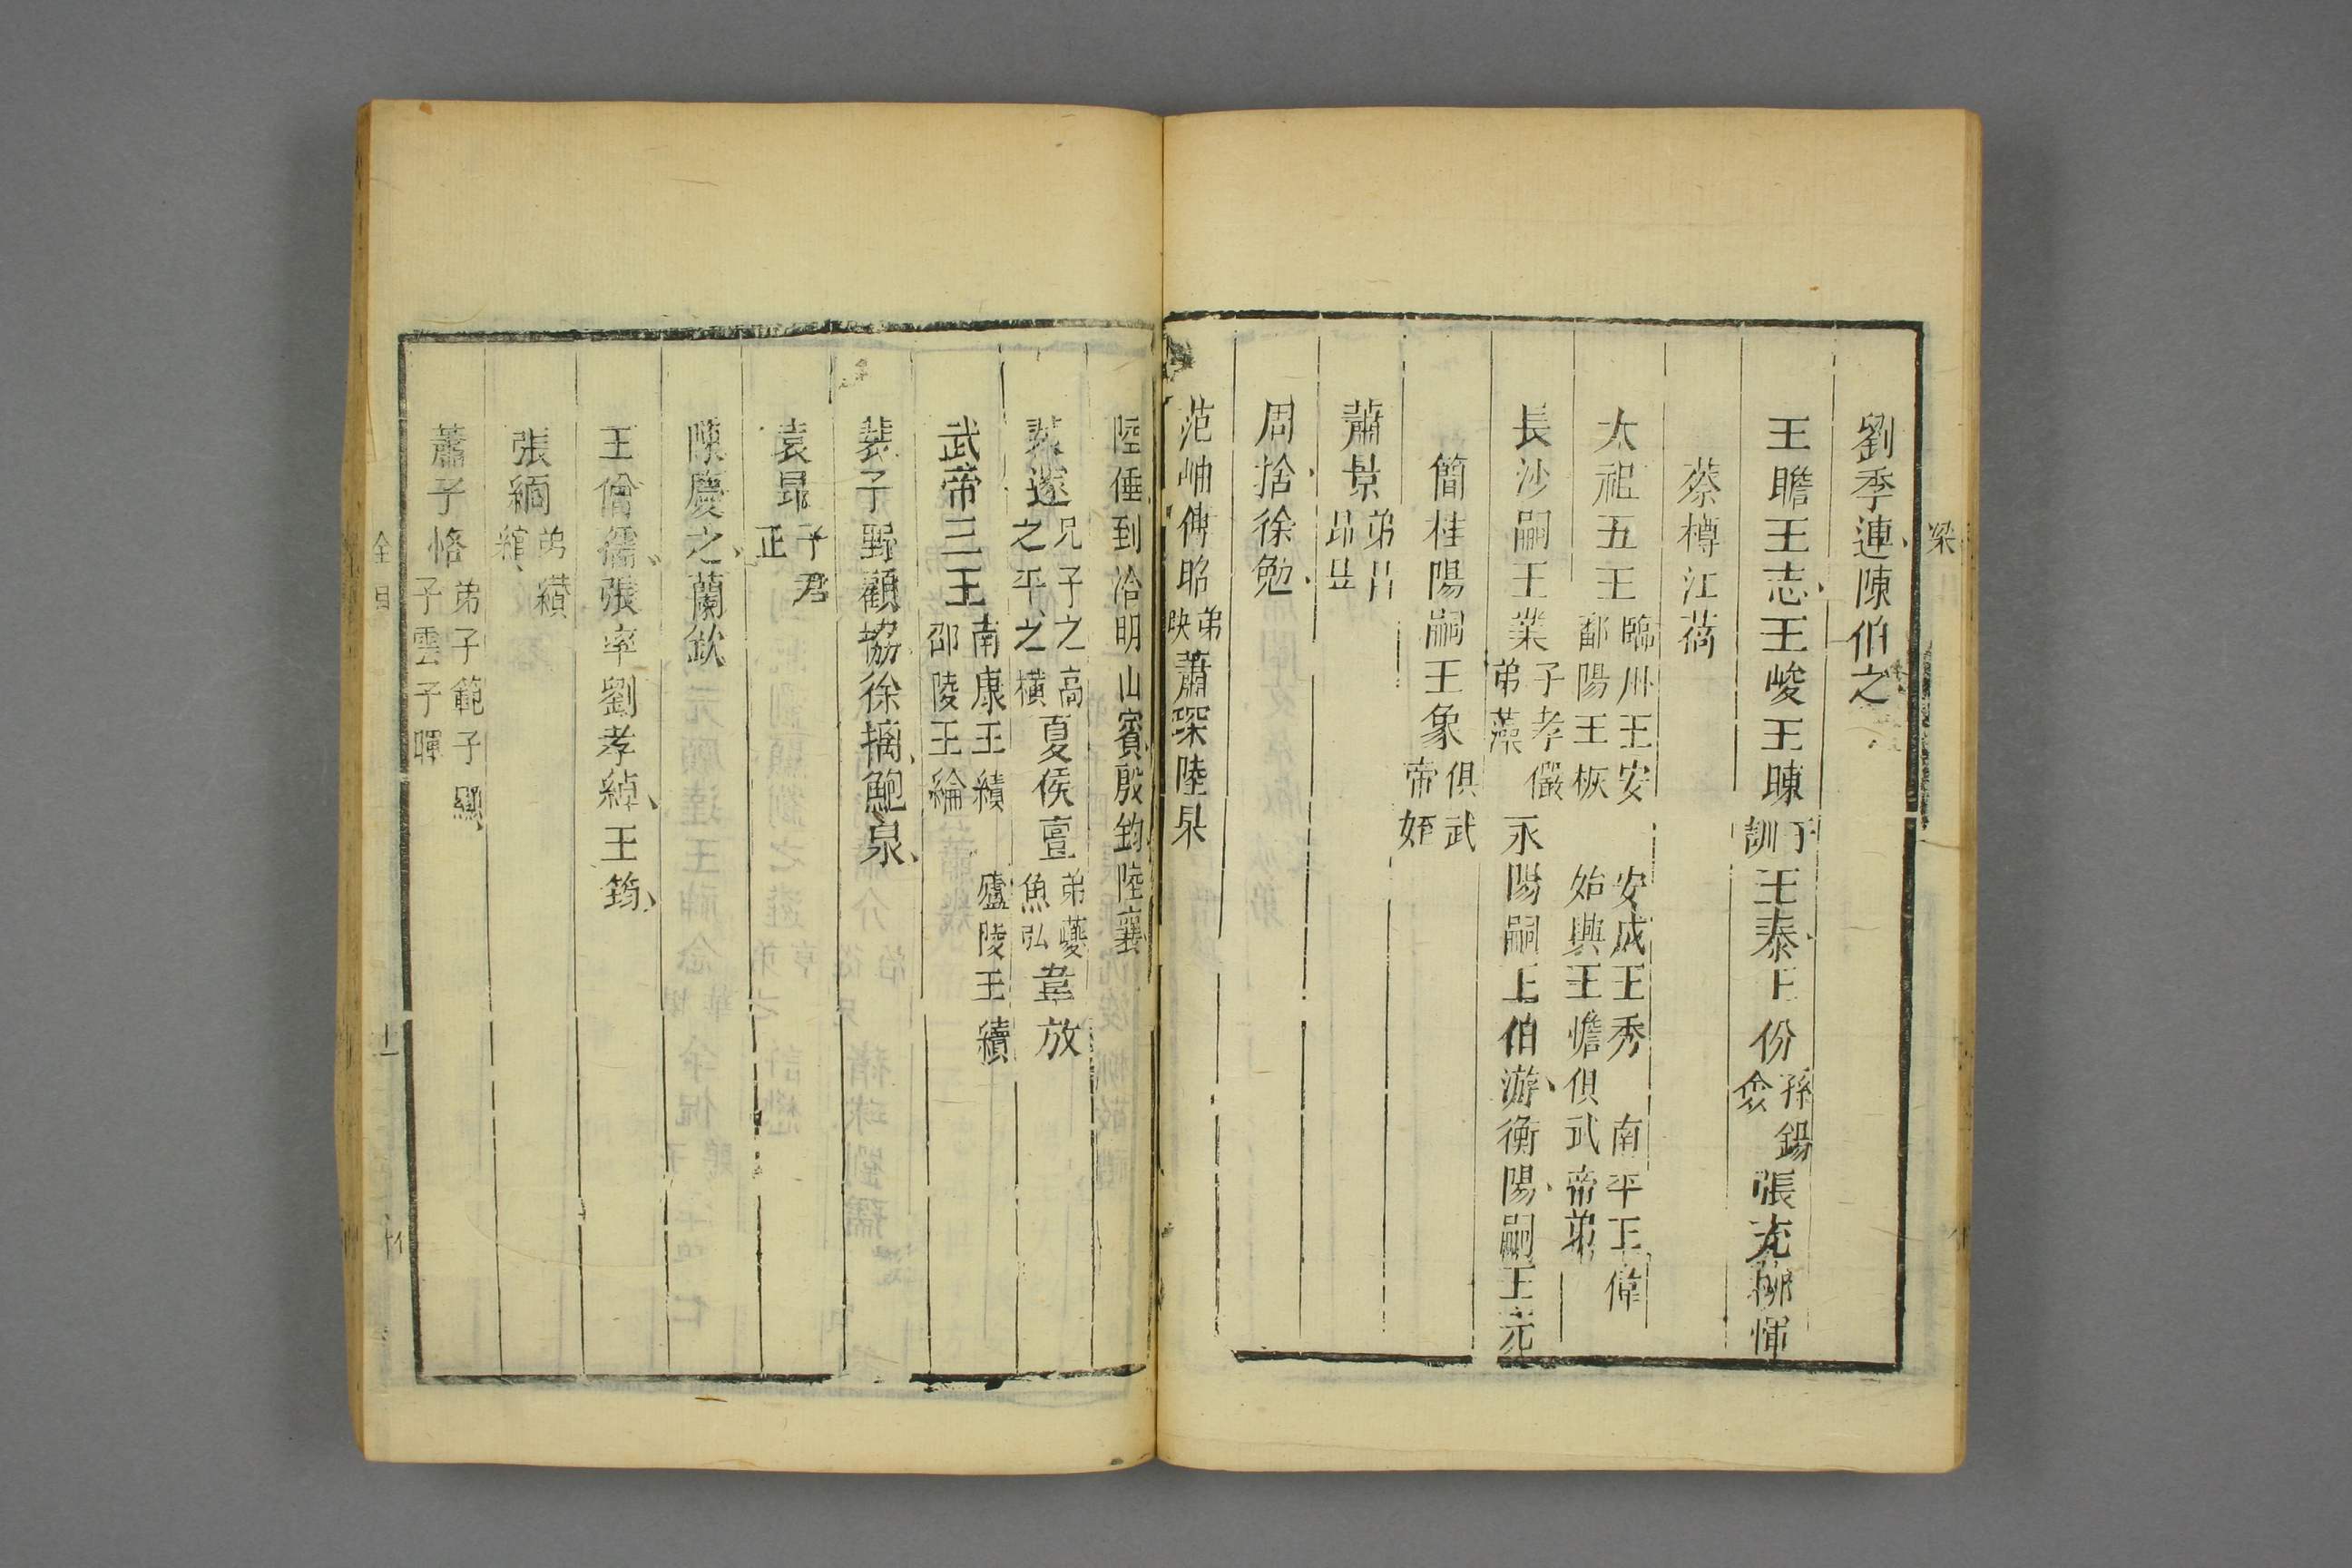 劉季連陳伯之
王瞻王志王峻王暕子訓王泰王份孫錫僉張充柳惲
蔡樽江蒨
太祖五王臨川王安 安成王秀 南平王偉
鄱陽王恢 始興王憺俱武帝弟
長沙嗣王業子孝儼弟藻永陽嗣王伯游衡陽嗣王元
簡桂陽嗣王象俱武帝姪
蕭景弟昌昂昱
周捨徐勉
范岫傅昭弟映蕭琛陸杲
陸倕到洽明山賓殷鈞陸襄
裴邃兄子之高之平之橫夏侯亶弟夔魚弘韋放
武帝三王南康王績 廬陵王續
邵陵王綸
裴子野顧協徐摛鮑泉
袁昂子君正
陳慶之蘭欽
王僧孺張率劉孝綽王筠
張緬弟纘綰
蕭子恪弟子範子顯子雲子暉
梁
全目